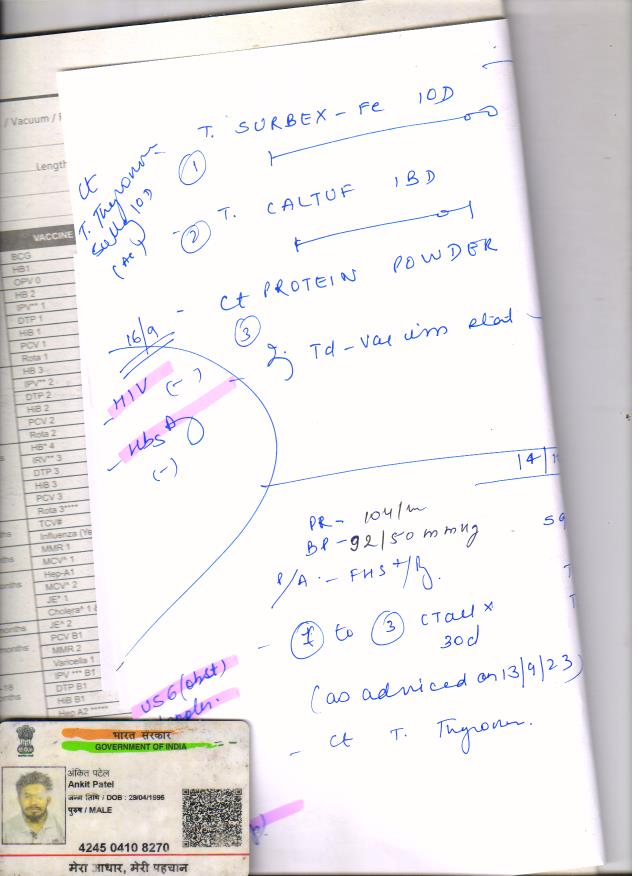 / Vacuum /
Length
VACCINE
BCG
HB1
OPV 0
HB 2
IPV** 1
DTP 1
HiB 1
PCV 1
Rota 1
HB 3
IPV** 2
DTP 2
HiB 2
PCV 2
Rota 2
HB* 4
DTP 3
HiB 3
PCV 3
Rota 3****
TCV#
Influenza (Ye
MMR 1
MCV^ 1
Hep-A1
MCV^ 2
JE^ 1
Cholera^ 1
JE^ 2
PCV B1
MMR 2
Varicella 1
IPV *** B1
DTP B1
HiB B1
Hep A2
T. SURBEX-Fe 1OD
①
Ct
T. Thyronorm
1OD
② T. CALTUF 1BD
- Ct PROTEIN POWDER
③
16/9
- HIV (-)
- HbsAg
(-)
Td-Vac
14/
PR- 104/m
BP- 92/50 mmHg
P/A - FHS +/R
- ① to ③ CT all x
30d
(as adviced on 13/9/23)
- Ct T. Thyronorm.
USG (obst)
भारत सरकार
GOVERNMENT OF INDIA
अंकित पटेल
Ankit Patel
जन्म तिथि / DOB : 29/04/1995
पुरुष / MALE
4245 0410 8270
मेरा आधार, मेरी पहचान